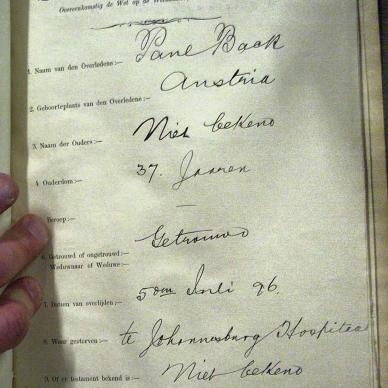 Overeenkomstig de Wet op de
Pane Back
1. Naam van den Overledene:—
Austria
2. Geboorteplaats van den Overledene:—
Niet bekend
3. Naam der Ouders:—
37. Jaaren
4 Ouderdom:—
—
Beroep:—
Getrouwd
6. Getrouwd of ongetrouwd:—
Weduwnaar of Weduwe:—
5den Juli 96.
7. Datum van overlijden:—
te Johannesburg Hospitaal
8. Waar gestorven:—
Niet bekend
9. Of er testament bekend is:—